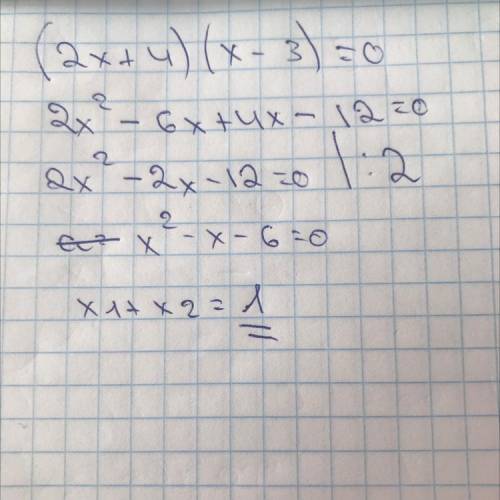 (2x+4)(x-3)=0
2x²-6x+4x-12=0
2x²-2x-12=0 |:2
x²-x-6=0
x1+x2=1